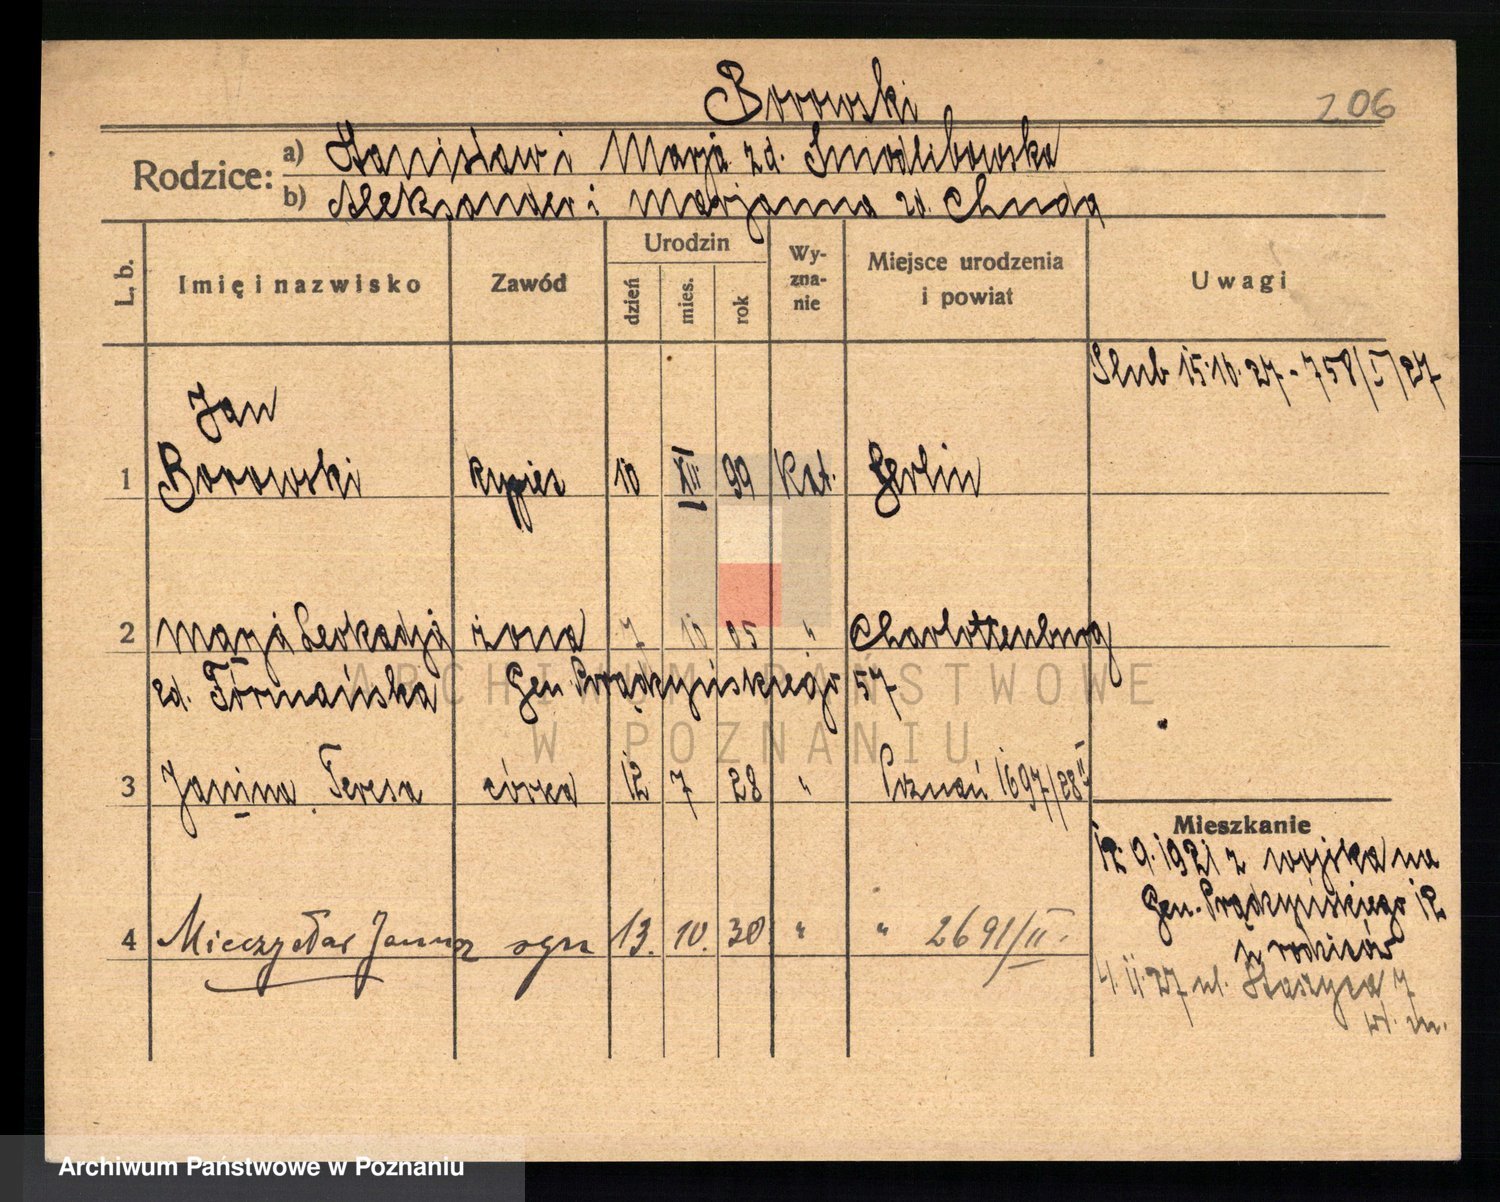 Borowski
206
Rodzice:
a) Stanisław i Marja zd. Smodlibowska
b) Aleksander i Marjanna zd. Chuda
L. b.
Imię i nazwisko
Zawód
Urodzin
dzień
mies.
rok
Wy-
zna-
nie
Miejsce urodzenia
i powiat
Uwagi
Ślub 15.10.27 - 758/I/27
Jan
1 Borowski kupiec 10 XII 99 Kat. Berlin
2 Marja Leokadja żona 7 10 05 " Charlottenburg
zd. Formańska Gen. Prądzyńskiego 57
3 Janina Teresa córka 12 7 28 " Poznań 1697/28 II
Mieszkanie
12.9.1921 z wojska na
Gen. Prądzyńskiego 12
u rodziców
4 Mieczysław Janusz syn 13. 10. 30 " " 2691/II.
4.11.27 ul. Staszyca 7
ARCHIWUM PAŃSTWOWE
W POZNANIU
Archiwum Państwowe w Poznaniu